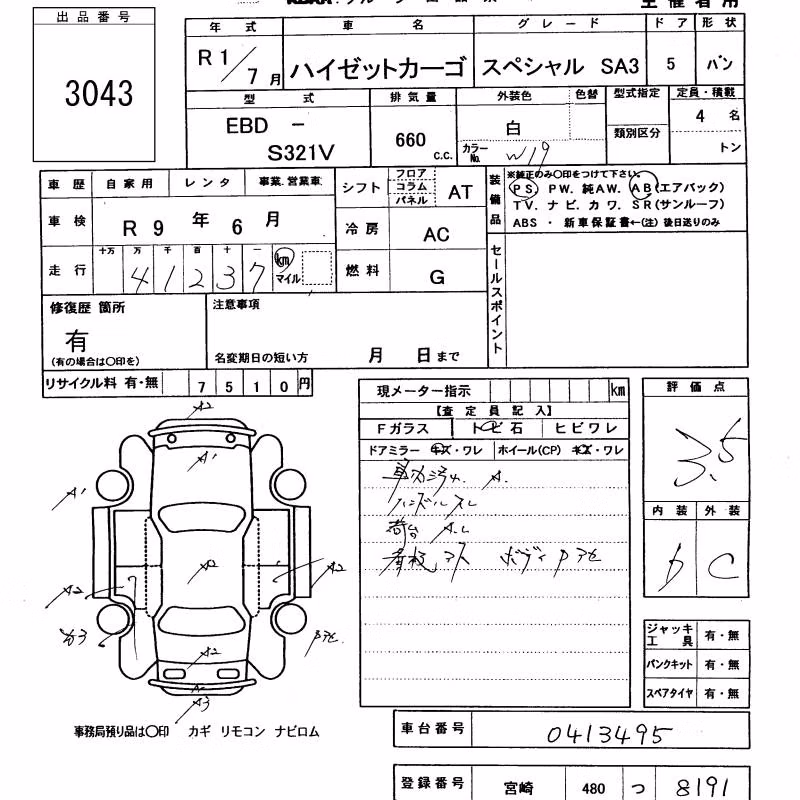 主催者用
出品番号
3043
年式 車名 グレード ドア 形状
R1/7月 ハイゼットカーゴ スペシャル SA3 5 バン
型式 排気量 外装色 色替 型式指定 定員・積載
EBD - S321V 660 c.c. 白 4名
カラーNo. W19 類別区分 トン
車歴 自家用 レンタ 事業.営業車
車検 R 9 年 6 月
走行 十万 万 千 百 十 一
4 1 2 3 7 km マイル
シフト フロア コラム パネル AT
冷房 AC
燃料 G
装備品 ※純正のみ〇印をつけて下さい。
PS. PW. 純AW. AB(エアバック)
TV. ナビ. カワ. SR(サンルーフ)
ABS ・ 新車保証書←(注) 後日送りのみ
セールスポイント
修復歴 箇所
有
(有の場合は〇印を)
注意事項
名変期日の短い方 月 日まで
リサイクル料 有・無 7510円
現メーター指示 km
【査定員記入】
Fガラス トビ石 ヒビワレ
ドアミラー キズ・ワレ ホイール(CP) キズ・ワレ
ハンドルスレ
ボディ
評価点
3.5
内装 外装
D C
A2
A1
A1
A2
A2
A2
A2
A3
ジャッキ工具 有・無
パンクキット 有・無
スペアタイヤ 有・無
事務局預り品は〇印 カギ リモコン ナビロム
車台番号 0413495
登録番号 宮崎 480 つ 8191